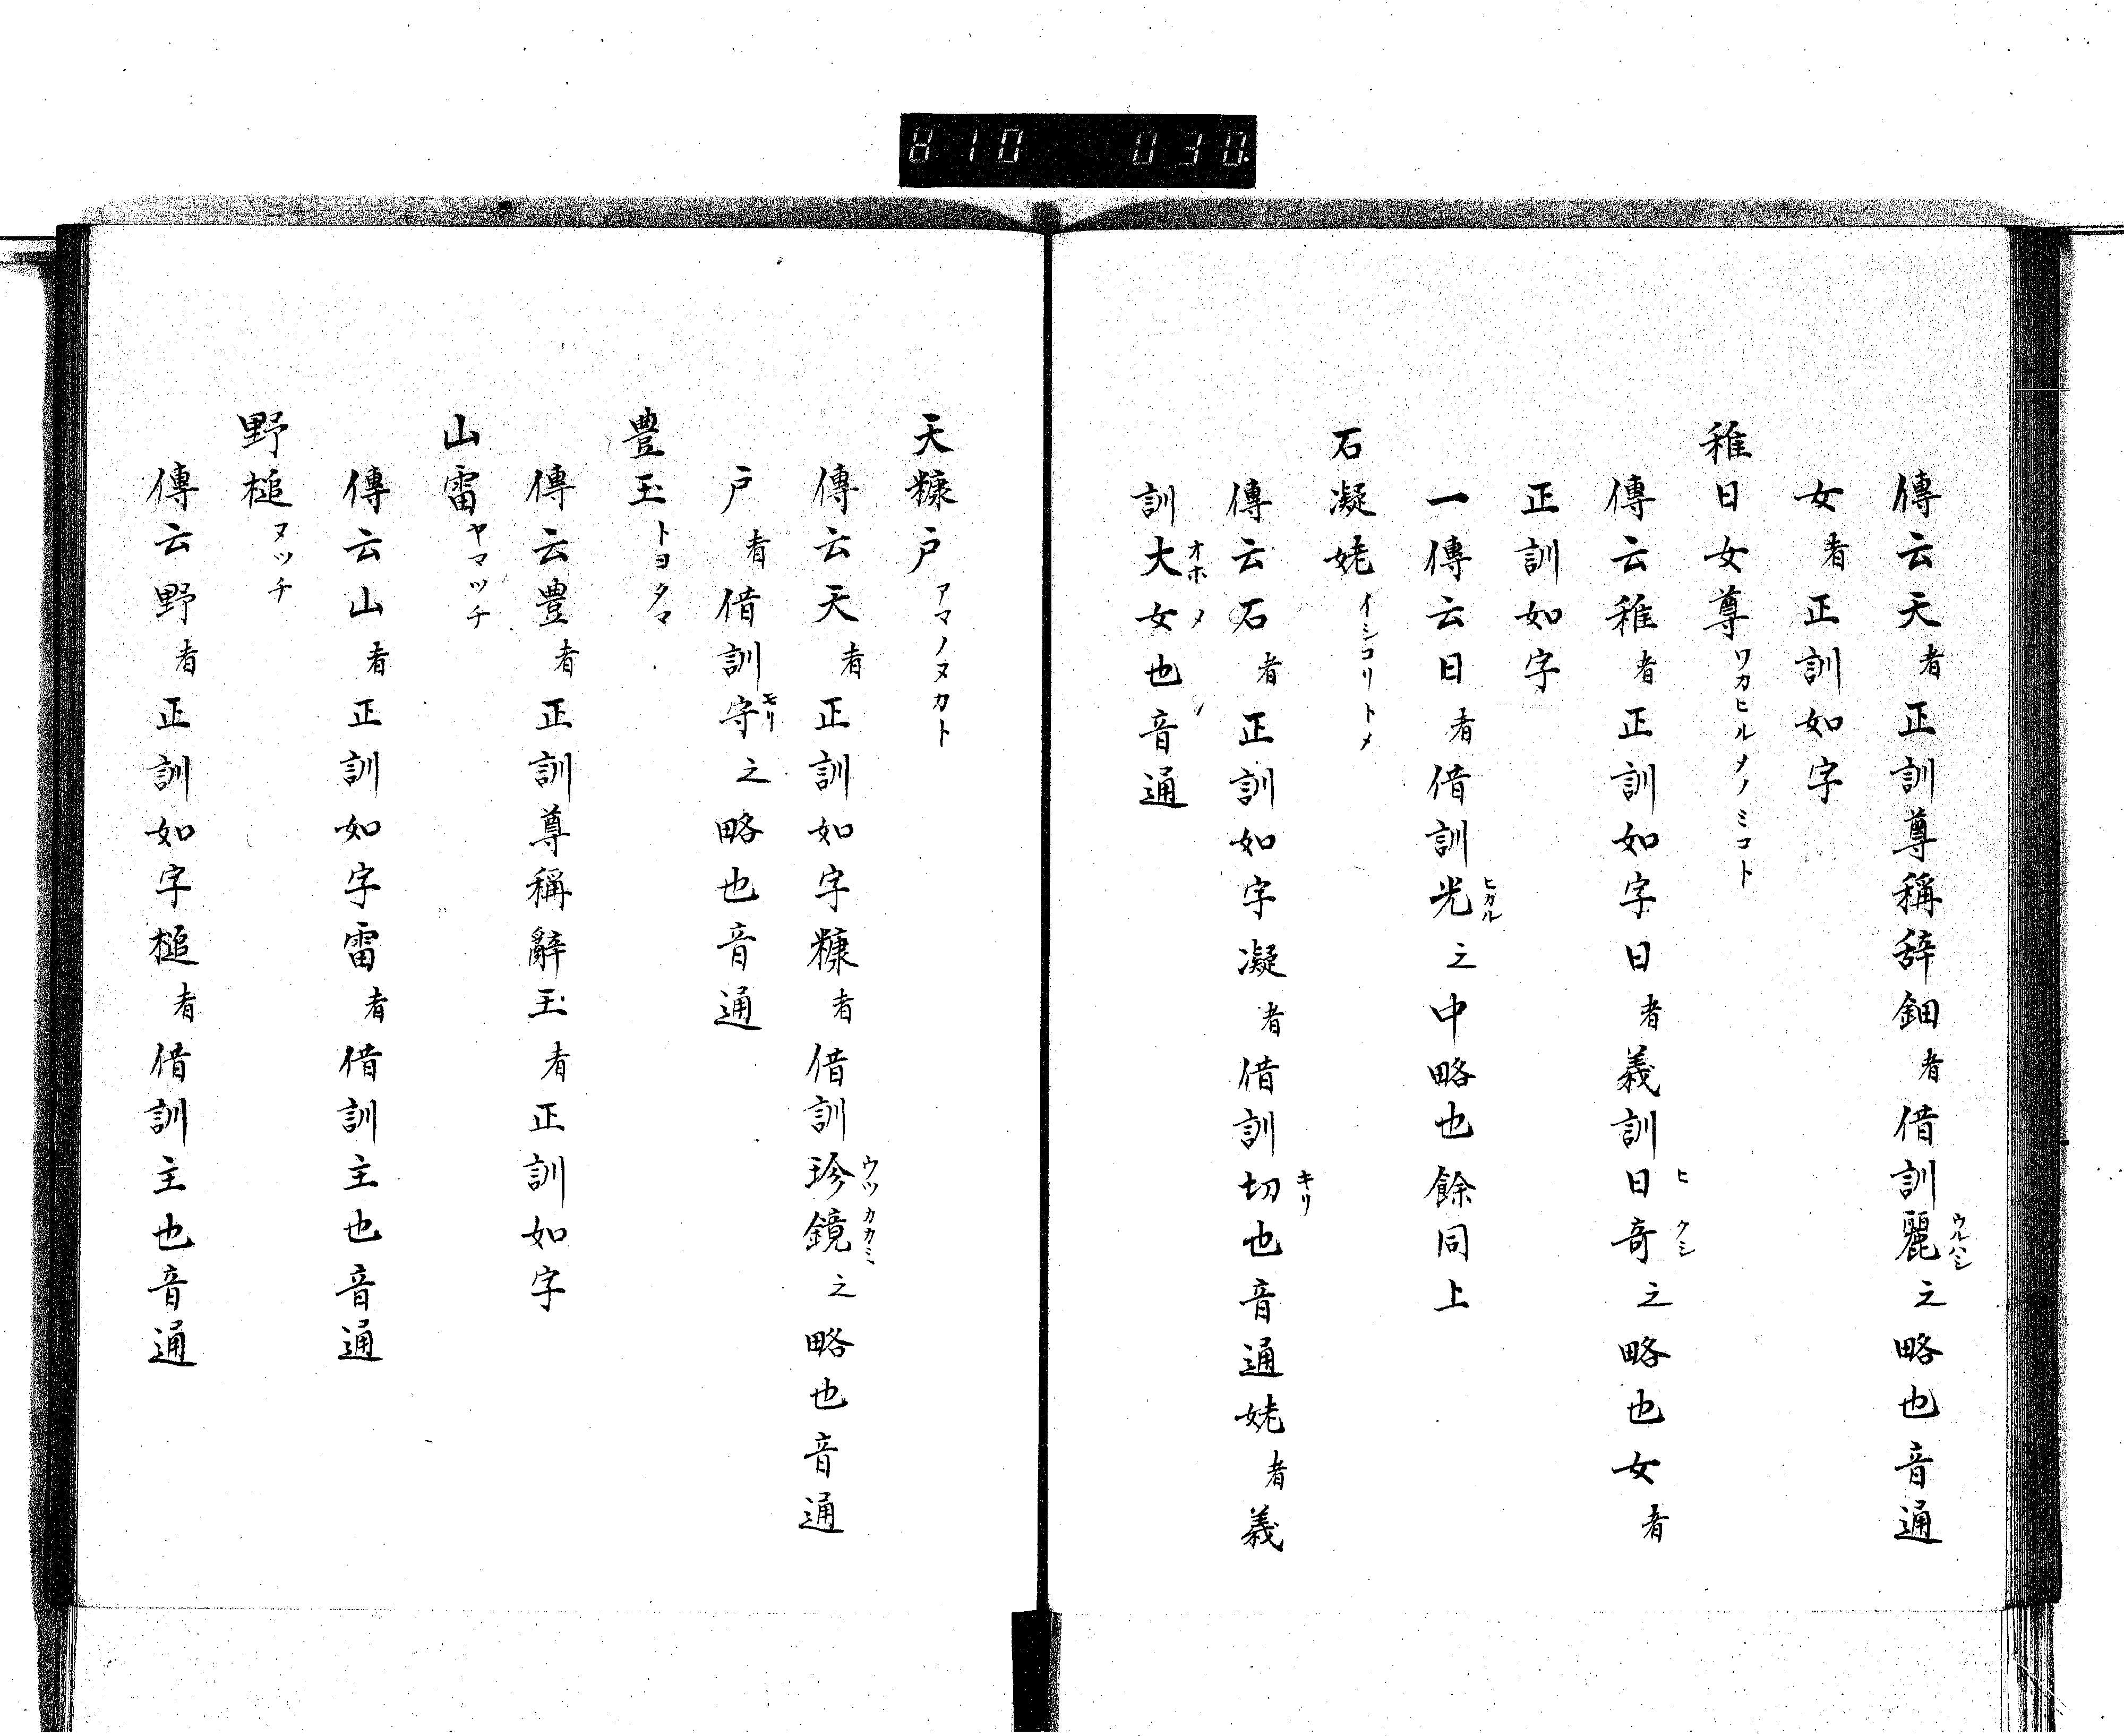 810 030.
傳云天者正訓尊稱辞鈿者借訓麗ウルハシ之略也音通
女者正訓如字
稚日女尊ワカヒルメノミコト
傳云稚者正訓如字日者義訓日ヒ奇クシ之略也女者
正訓如字
一傳云日者借訓光ヒカル之中略也餘同上
石凝姥イシコリトメ
傳云石者正訓如字凝者借訓切キリ也音通姥者義
訓大オホ女メ也音通
天糠戸アマノヌカト
傳云天者正訓如字糠者借訓珍ウツ鏡カカミ之略也音通
戸者借訓守モリ之略也音通
豊玉トヨタマ
傳云豊者正訓尊稱辭玉者正訓如字
山雷ヤマツチ
傳云山者正訓如字雷者借訓主也音通
野槌ヌツチ
傳云野者正訓如字槌者借訓主也音通